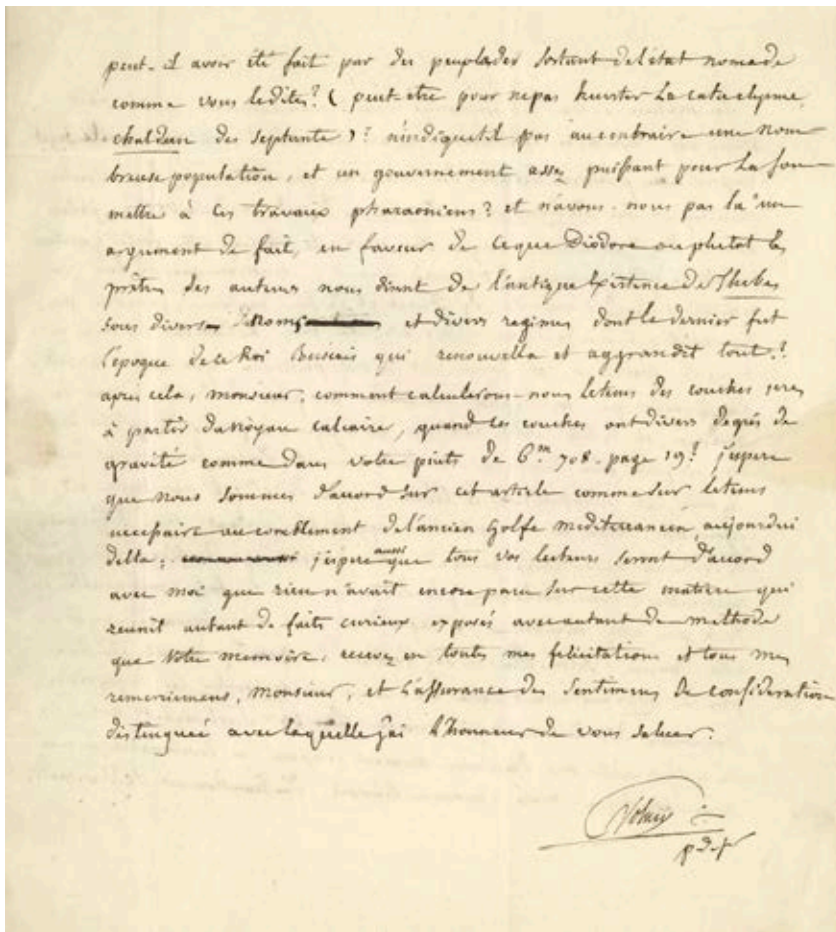 peut-il avoir été fait par des peuplades sortant de l'état nomade
comme vous le dites? (peut-etre pour ne pas heurter la cataclysme
chaldeen des septante)? n'indique til pas au contraire une nom
breuse population, et un gouvernement assez puissant pour la sou
mettre à ces travaux pharaoniens? et n'avons-nous pas là un
argument de fait, en faveur de ce que Diodore ou plutot les
prêtres ses auteurs nous disent de l'antique existence de Thebes
sous divers noms et divers regimes dont le dernier fut
l'epoque de ce Roi Busiris qui renouvella et aggrandit tout?
après cela, monsieur, comment calculerons-nous le tems des couches
à partir du noyau calcaire, quand ces couches ont divers degrés de
gravité comme dans votre puits de 6.m 708. page 19? j'espere
que nous sommes d'accord sur cet article comme sur le tems
necessaire au comblement de l'ancien Golfe mediterraneen aujourdui
delta; j'espere aussi que tous vos lecteurs seront d'accord
avec moi que rien n'avait encore paru sur cette matiere qui
reunit autant de faits curieux exposés avec autant de methode
que votre memoire. recevez en toutes mes felicitations et tous mes
remerciemens, monsieur, et l'assurance des sentimens de consideration
distinguée avec laquelle j'ai l'honneur de vous saluer.
Volney
p.d.f